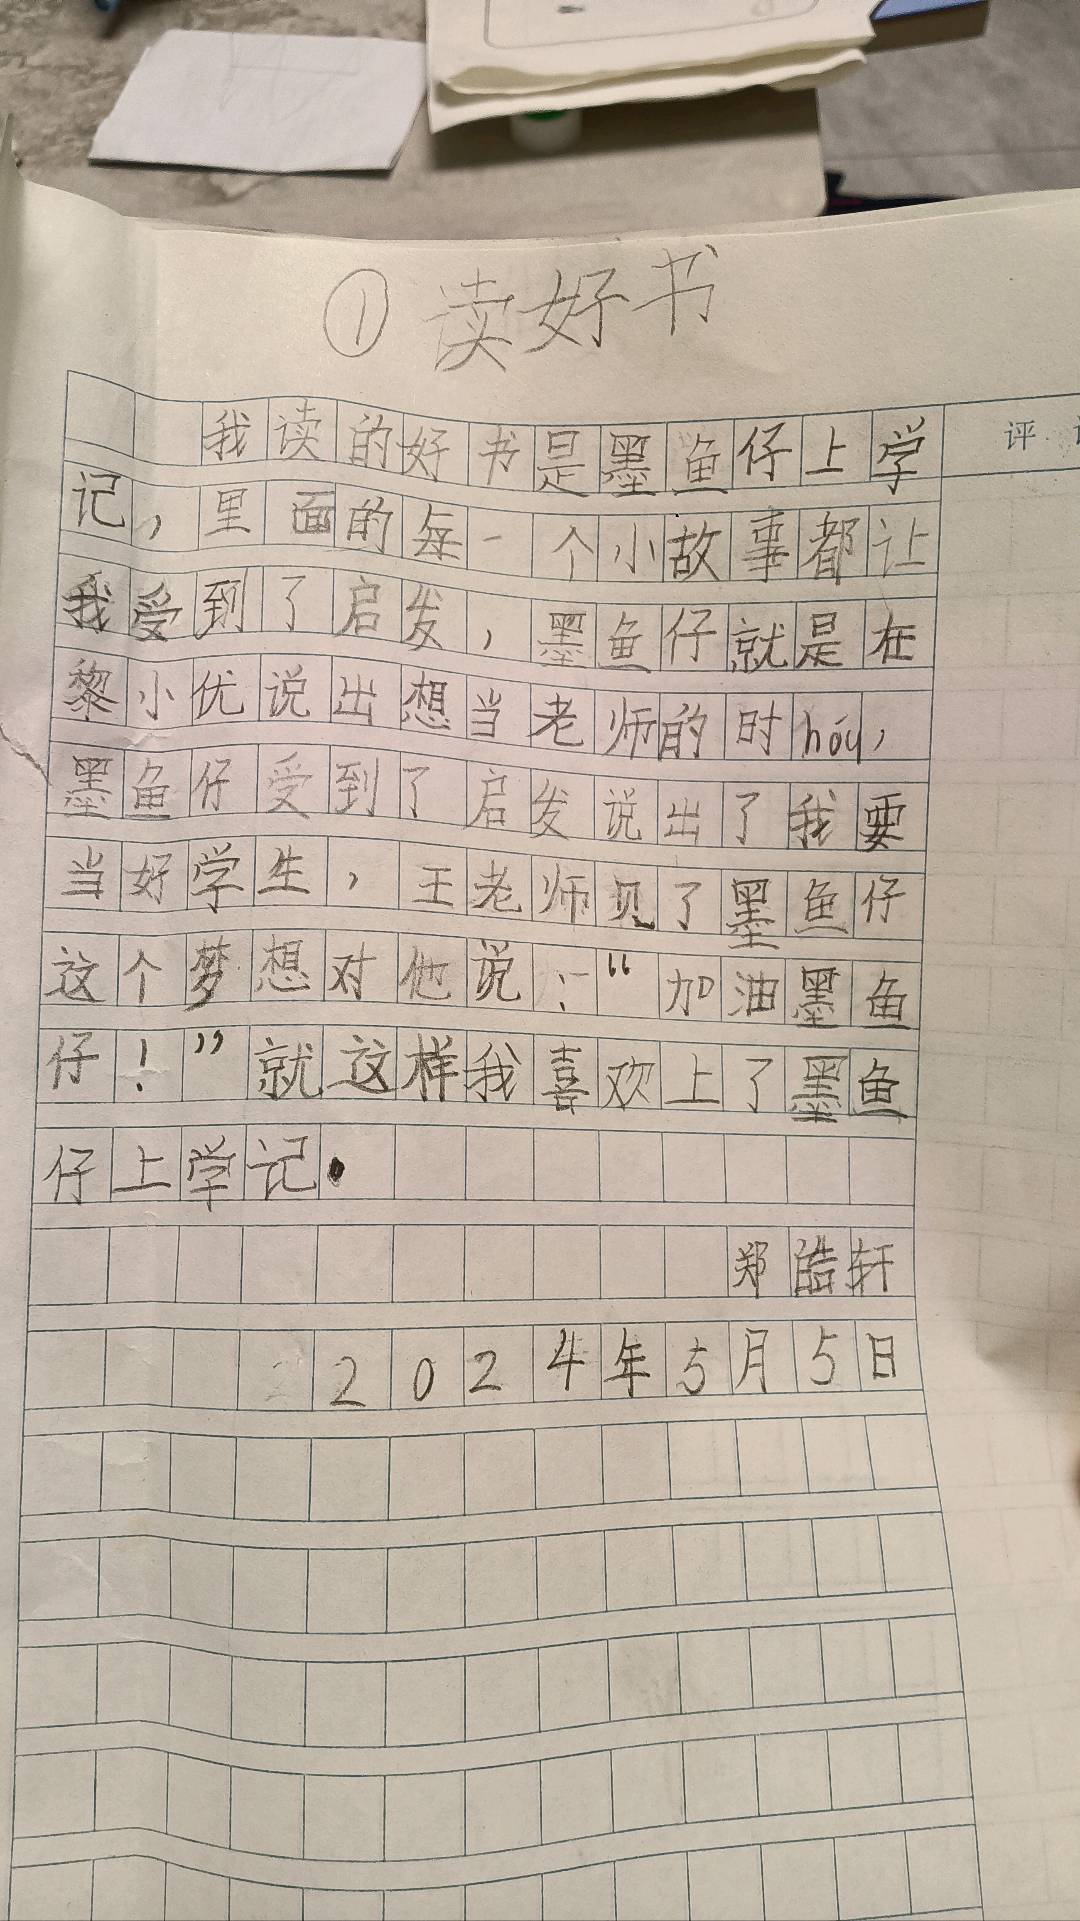 ①读好书
我读的好书是墨鱼仔上学
记，里面的每一个小故事都让
我受到了启发，墨鱼仔就是在
黎小优说出想当老师的时hóu，
墨鱼仔受到了启发说出了我要
当好学生，王老师见了墨鱼仔
这个梦想对他说：“加油墨鱼
仔！”就这样我喜欢上了墨鱼
仔上学记.
郑皓轩
2024年5月5日
评